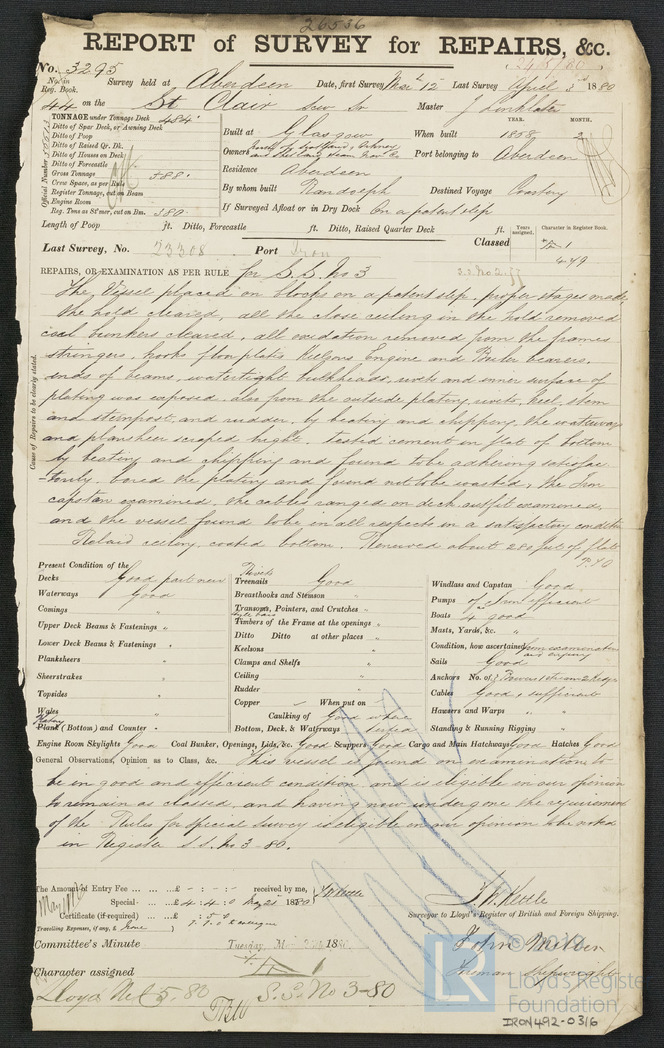 26536
REPORT of SURVEY for REPAIRS, &c.
No. 3295
No. in Reg. Book.
Survey held at Aberdeen Date, first Survey Mar 12 Last Survey April 3d 1880
44 on the St Clair Scw Sr Master J Linklater
TONNAGE under Tonnage Deck 484
Ditto of Spar Deck, or Awning Deck
Ditto of Poop
Ditto of Raised Qr. Dk.
Ditto of Houses on Deck
Ditto of Forecastle
Gross Tonnage
Crew Space, as per Rule
Register Tonnage, cut on Beam
Engine Room
Reg. Tons as St'mer, cut on Bm. 380
Official Number
YEAR. MONTH.
Built at Glasgow When built 1858 2
Owners North of Scotland, Orkney and Shetland Steam Nav Co Port belonging to Aberdeen
Residence Aberdeen
By whom built Randolph Destined Voyage Coasting
If Surveyed Afloat or in Dry Dock On a patent slip
Length of Poop ft. Ditto, Forecastle ft. Ditto, Raised Quarter Deck ft.
Years assigned. Character in Register Book.
Last Survey, No. 23308 Port Iron Classed
4-79
REPAIRS, OR EXAMINATION AS PER RULE for S.S. No 3
S.S. No 2-77
Cause of Repairs to be clearly stated.
The Vessel placed on blocks on a patent slip, proper stages made
the hold cleared, all the close ceiling in the hold removed
coal bunkers cleared, all oxidation removed from the frames
stringers, hooks floorplates Keelsons Engine and Boiler bearers,
ends of beams, watertight bulkheads, rivets and inner surface of
plating was exposed, also from the outside plating, rivets, keel, stem
and sternpost, and rudder, by beating and chipping, the waterways
and plansheer scraped bright. Tested cement in flat of bottom
by beating and chipping and found to be adhering satisfac
-torily. bored the plating and found not to be wasted, the Iron
capstan examined, the cables ranged on deck, outfit examined,
and the vessel found to be in all respects in a satisfactory condition
Relaid ceiling, coated bottom. Renewed about 280 feet of flat
P.T.O
Present Condition of the
Decks Good part new
Waterways Good
Comings "
Upper Deck Beams & Fastenings "
Lower Deck Beams & Fastenings "
Planksheers "
Sheerstrakes "
Topsides "
Wales "
Plating
Plank (Bottom) and Counter "
Rivets
Treenails Good
Breasthooks and Stemson "
Transoms, Pointers, and Crutches "
Timbers of the Frame at the openings "
Ditto Ditto at other places "
Keelsons "
Clamps and Shelfs "
Ceiling "
Rudder "
Copper — When put on
Caulking of Good where
Bottom, Deck, & Waterways tested
Windlass and Capstan Good
Pumps of Iron efficient
Boats 4 good
Masts, Yards, &c. "
Condition, how ascertained from examination and enquiry
Sails Good
Anchors No. of 3 Bowers 1 Stream 2 Kedges
Cables Good, sufficient
Hawsers and Warps "
Standing & Running Rigging "
Engine Room Skylights Good Coal Bunker, Openings, Lids, &c. Good Scuppers Good Cargo and Main Hatchways Good Hatches Good
General Observations, Opinion as to Class, &c. This vessel is found on examination to
be in good and efficient condition and is eligible in our opinion
to remain as classed, and having now undergone the requirements
of the Rules for special survey is eligible in our opinion to be noted
in Register S.S. No 3-80.
The Amount of Entry Fee ... £ - : - : - received by me,
Special ... £ 4.4.0 May 21 1880
Certificate (if required) ... : 5 :
Travelling Expenses, if any, £ None
J. W. Kettle
Surveyor to Lloyd's Register of British and Foreign Shipping.
Committee's Minute Tuesday, May 188
John Milber
Foreman Shipwright
Character assigned
Lloyds MC 5.80 S.S. No 3-80
LR
© 2019
Lloyd's Register
Foundation
IRON492-0316